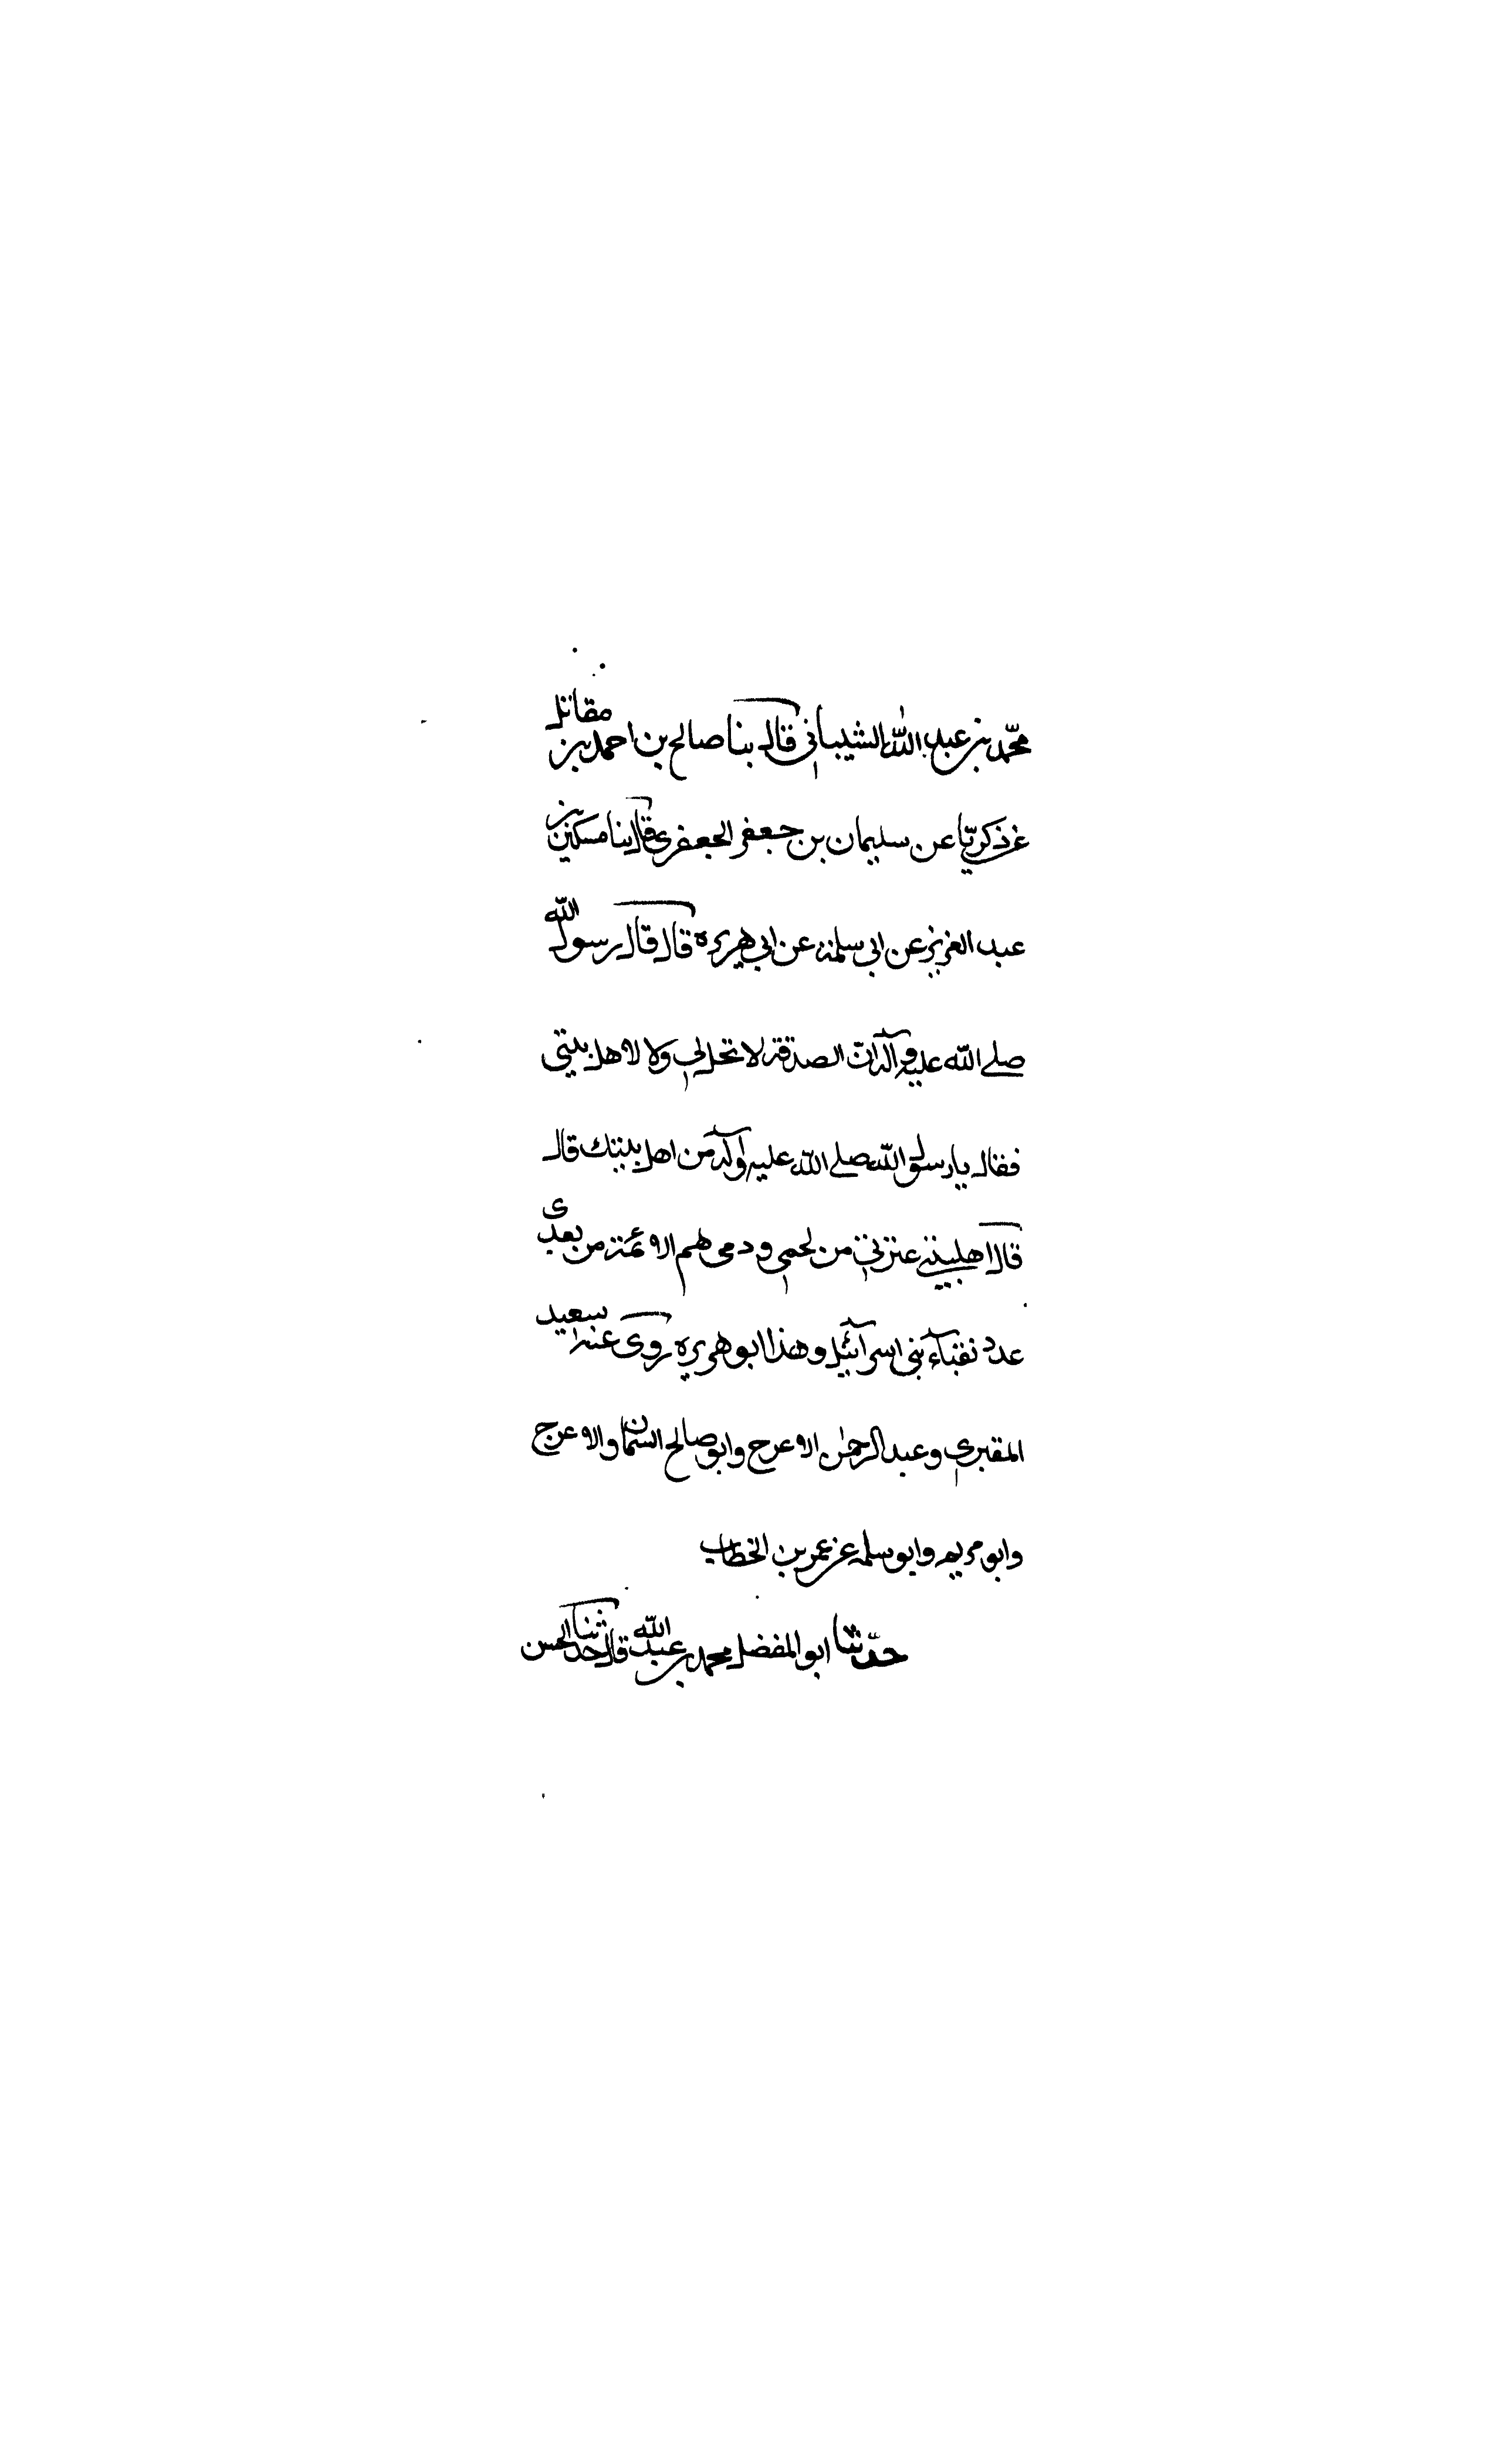 محمّد بن عبد الله الشيباني قال بنا صالح بن احمد بن مقاتل
عن زكريّا عن سليمان بن جعفر الجعفري قال بنا مسكين بن
عبد العزيز عن ابي سلمة عن ابي هريره قال قال رسول الله
صلے الله عليه وآله انّ الصدقة لا تحل لي ولا لاهل بيتي
فقال يا رسول الله صلے الله عليه وآله من اهل بيتك قال
قال اهلبيتي عترتي من لحمي ودمي هم الائمة من بعدي
عدد نقباء بني اسرآئيل وهذا ابو هريره روى عنه سعيد
المقبري وعبد الرحمن الاعرج وابو صالح السمان والاعرج
وابو مريم وابو سلمه عن عمر بن الخطاب
حدّثنا ابو المفضل محمد بن عبد الله قال حدثنا الحسن